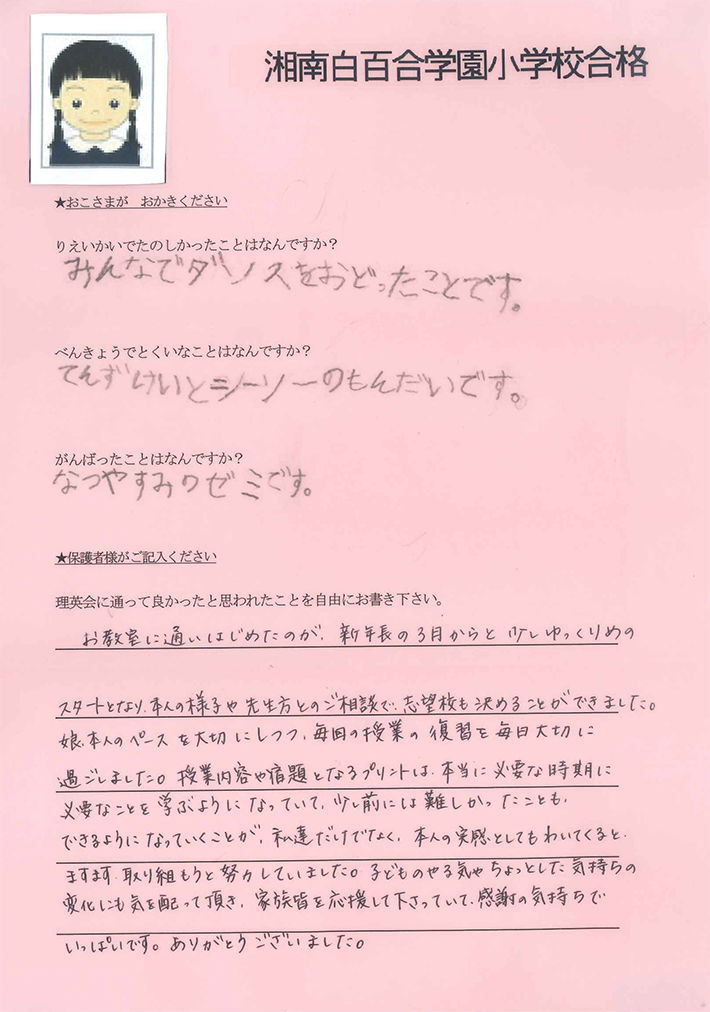 湘南白百合学園小学校合格
★おこさまが　おかきください
りえいかいでたのしかったことはなんですか？
みんなでダンスをおどったことです。
べんきょうでとくいなことはなんですか？
てんずけいとシーソーのもんだいです。
がんばったことはなんですか？
なつやすみのゼミです。
★保護者様がご記入ください
理英会に通って良かったと思われたことを自由にお書き下さい。
お教室に通いはじめたのが、新年長の3月からと少しゆっくりめの
スタートとなり、本人の様子や先生方とのご相談で、志望校も決めることができました。
娘本人のペースを大切にしつつ、毎回の授業の復習を毎日大切に
過ごしました。授業内容や宿題となるプリントは、本当に必要な時期に
必要なことを学ぶようになっていて、少し前には難しかったことも、
できるようになっていくことが、私達だけでなく、本人の実感としてもわいてくると、
ますます取り組もうと努力していました。子どものやる気やちょっとした気持ちの
変化にも気を配って頂き、家族皆を応援して下さっていて、感謝の気持ちで
いっぱいです。ありがとうございました。